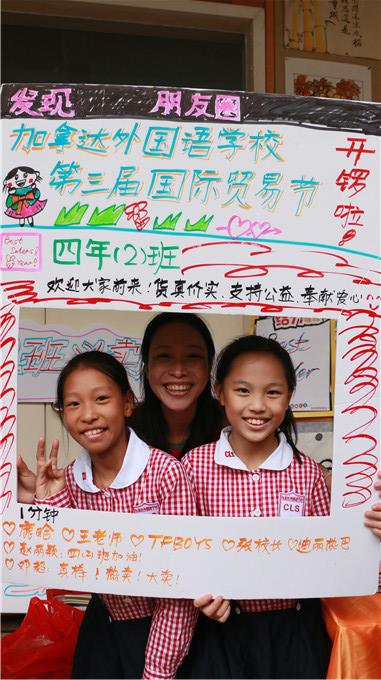 发现 朋友圈
加拿达外国语学校
第三届国际贸易节
开锣啦!
Best
Sellers
Year!
四年(2)班
欢迎大家前来!货真价实.支持公益.奉献爱心
班
卖
CLS
CLS
1分钟
♡鹿晗 ♡王老师 ♡TFBOYS ♡张校长 ♡迪丽热巴
♡赵丽颖:四(2)班加油!
♡邓超:真棒!大卖!